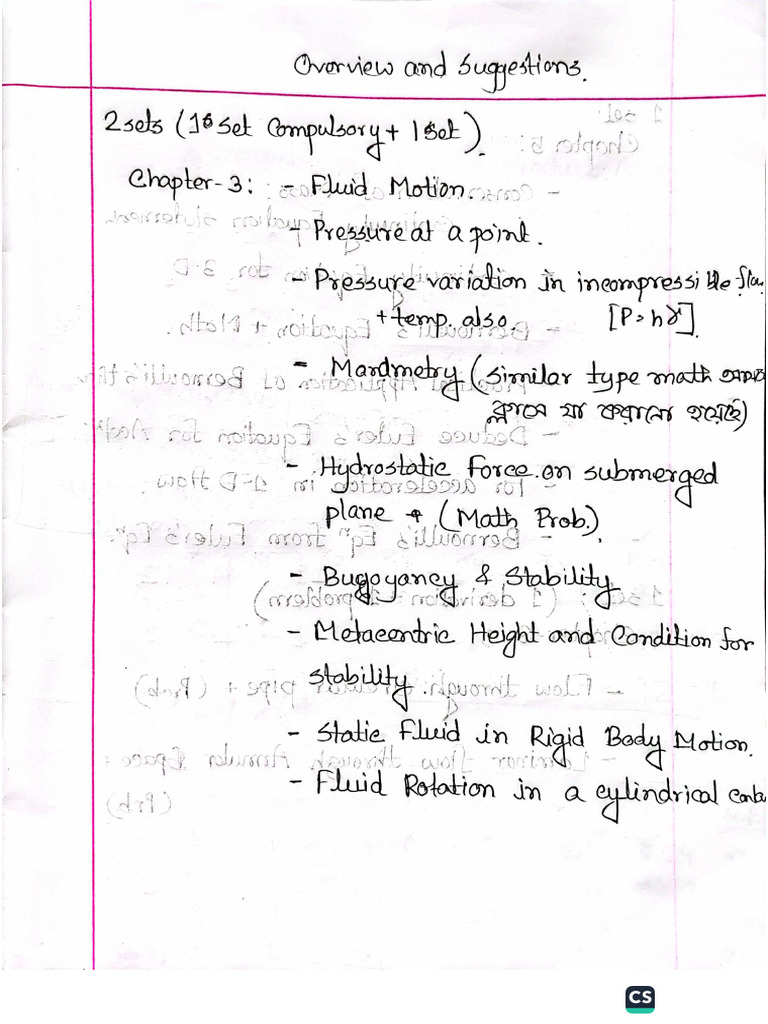 Overview and Suggestions.
2sets (1 Set Compulsory + 1 Set).
Chapter-3: - Fluid Motion.
- Pressure at a point.
- Pressure variation in incompressible
+ temp. also. [P=hγ].
- (similar type math
ক্লাসে যা করানো হয়েছে)
- Hydrostatic Force on submerged
plane + (Math Prob.).
- Bugoyancy & Stability
- Metacentric Height and Condition for
stability.
- Static Fluid in Rigid Body Motion.
- Fluid Rotation in a cylindrical
CS